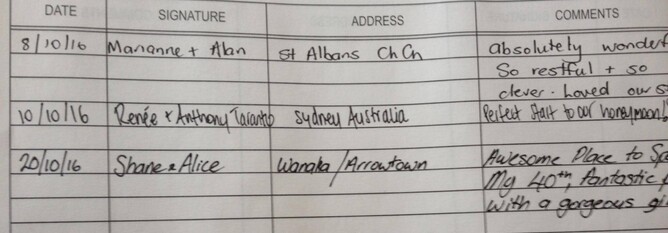 DATE SIGNATURE ADDRESS COMMENTS
8/10/16 Marianne + Alan St Albans Ch Ch absolutely
So restful + so
clever. Loved our
10/10/16 Renée + Anthony Taranto Sydney Australia Perfect start to our honeymoon!
20/10/16 Shane & Alice Wanaka/Arrowtown Awesome Place to
My 40th, fantastic
with a gorgeous